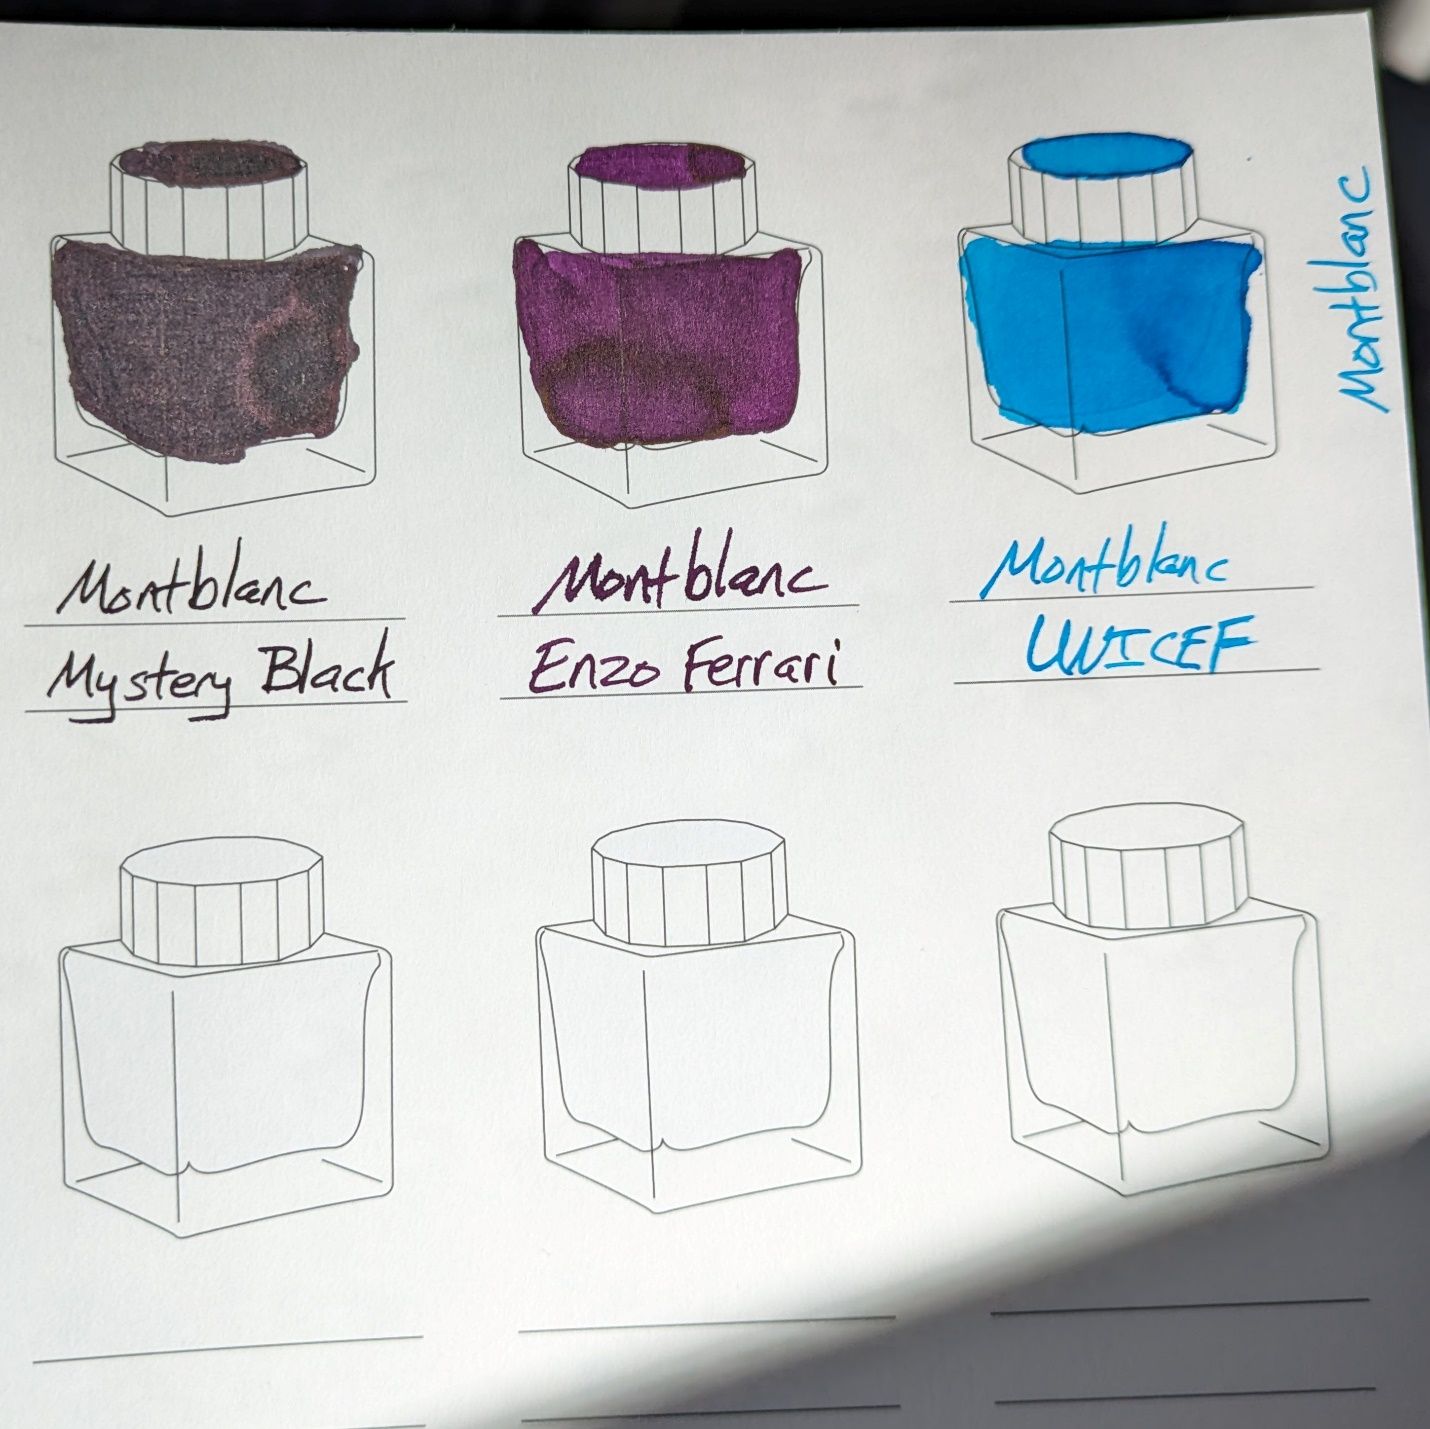 Montblanc
Mystery Black
Montblanc
Enzo Ferrari
Montblanc
UNICEF
Montblanc